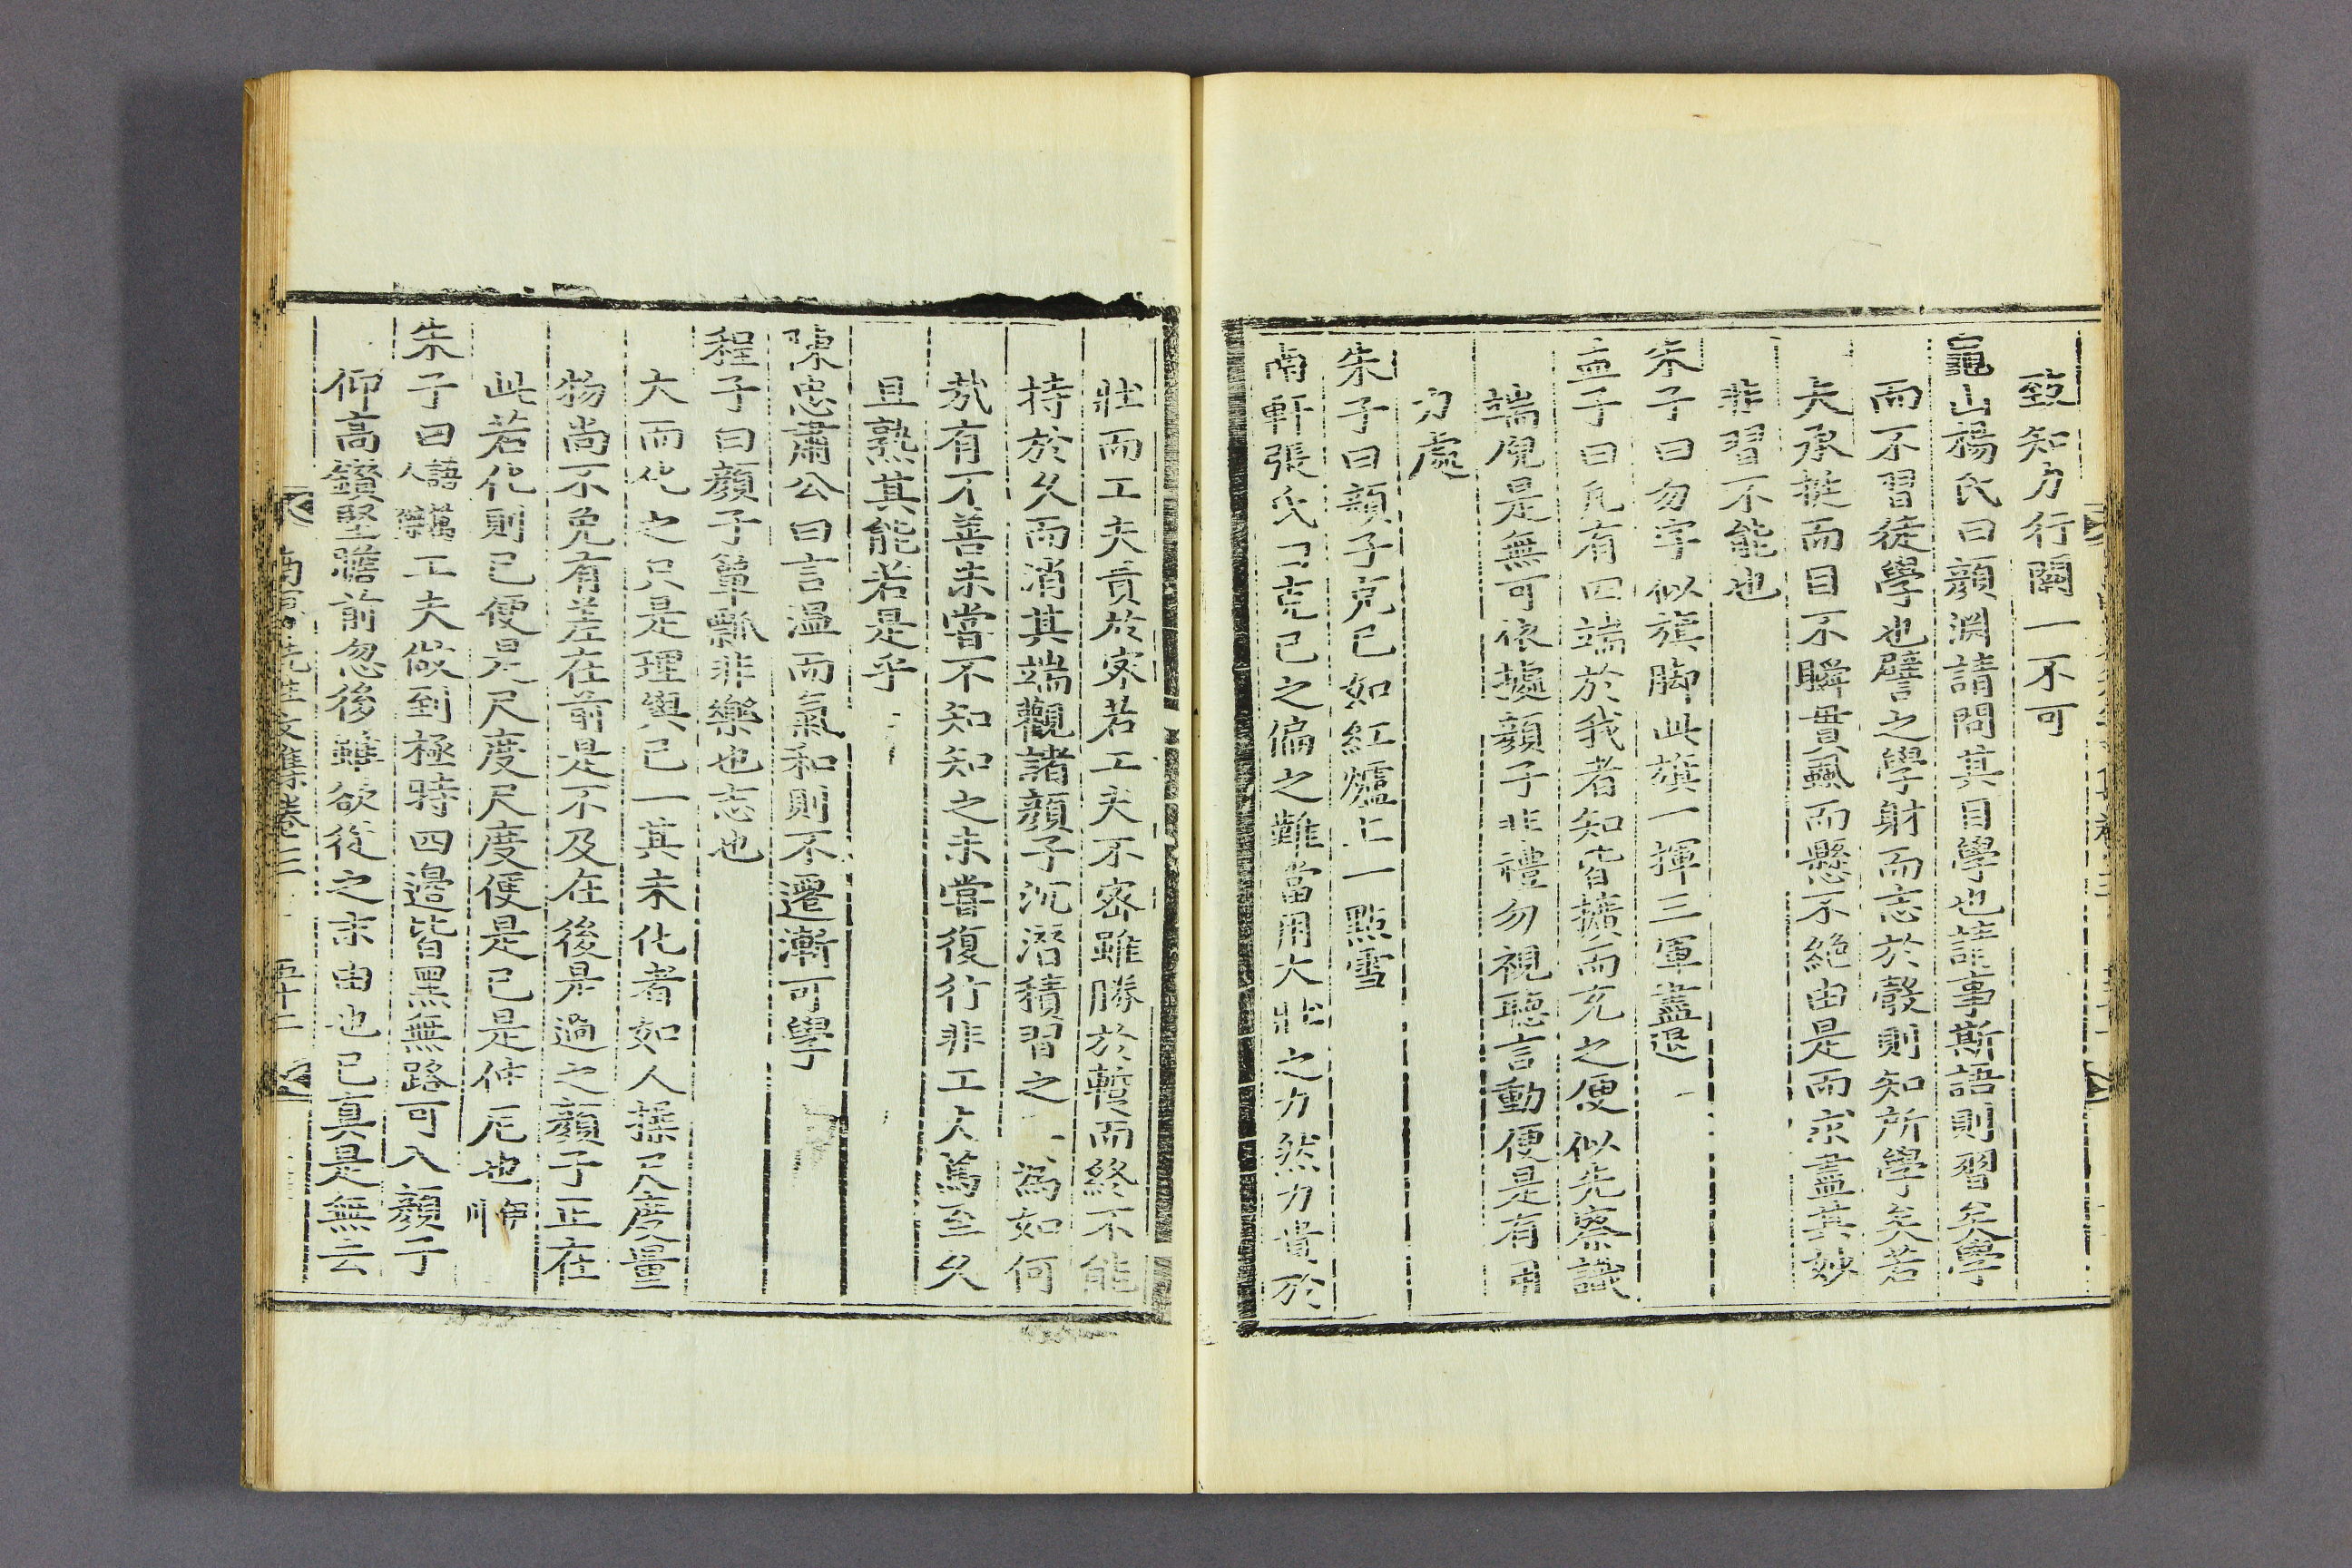 致知力行闕一不可
龜山楊氏曰顏淵請問其目學也請事斯語則習矣學
而不習徒學也譬之學射而志於彀則知所學矣若
夫承挺而目不瞬貫虱而懸不絶由是而求盡其妙
非習不能也
朱子曰勿字似旗脚此旗一揮三軍盡退
孟子曰凡有四端於我者知皆擴而充之便似先察識
端倪是無可依據顏子非禮勿視聽言動便是有用
力處
朱子曰顏子克己如紅爐上一點雪
南軒張氏曰克己之偏之難當用大壯之力然力貴於
壯而工夫貴於密若工夫不密雖勝於暫而終不能
持於久而消其端觀諸顏子沉潛積習之 爲如何
㢤有不善未嘗不知知之未嘗復行非工夫篤至久
且熟其能若是乎
陳忠肅公曰言溫而氣和則不遷漸可學
程子曰顏子簞瓢非樂也忘也
大而化之只是理與己一其未化者如人操尺度量
物尚不免有差在前是不及在後是過之顏子正在
此若化則已便是尺度尺度便是己是仲尼也伊川
朱子曰人語 䨱工夫做到極時四邉皆黑無路可入顏子
仰高鑽堅瞻前忽後雖欲從之末由也已真是無去
先生文集卷三 五十二